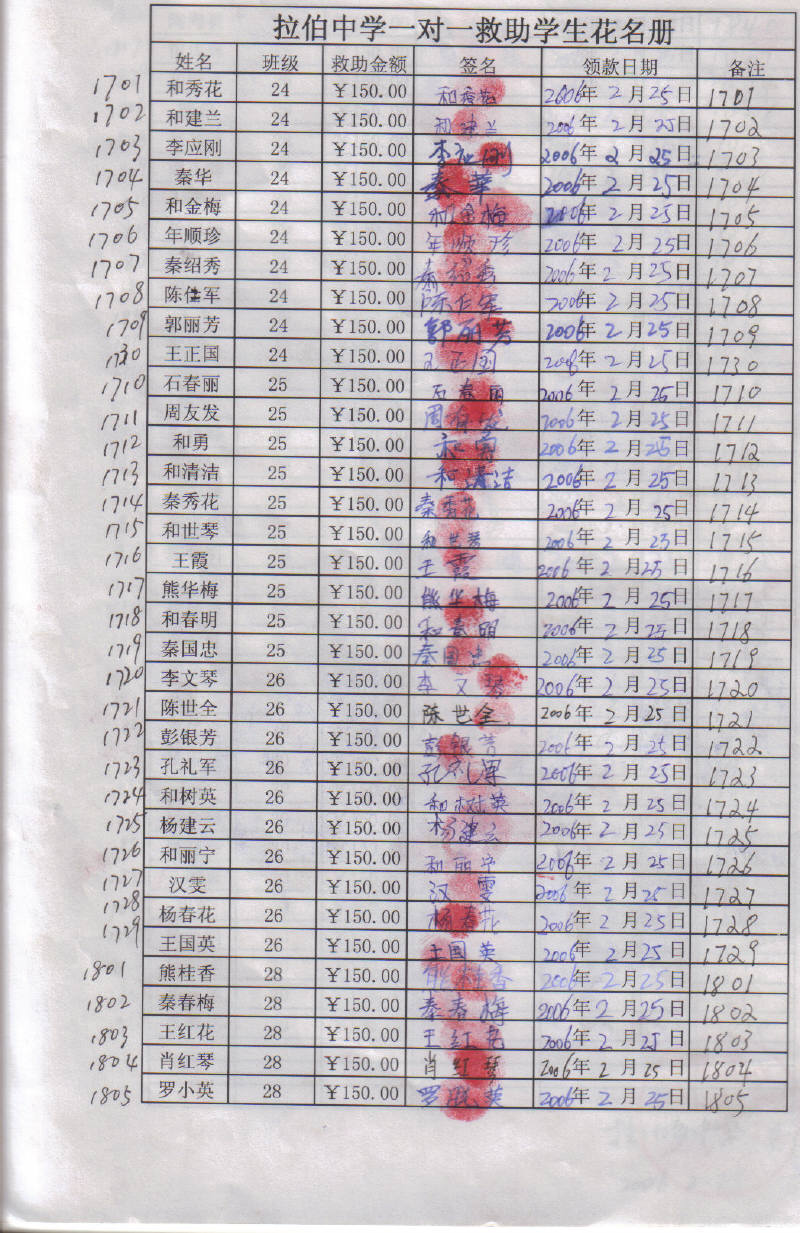 拉伯中学一对一救助学生花名册
姓名 班级 救助金额 签名 领款日期 备注
1701 和秀花 24 ￥150.00 和秀花 2006年2月25日 1701
1702 和建兰 24 ￥150.00 和建兰 2006年2月25日 1702
1703 李应刚 24 ￥150.00 李应刚 2006年2月25日 1703
1704 秦华 24 ￥150.00 秦华 2006年2月25日 1704
1705 和金梅 24 ￥150.00 和金梅 2006年2月25日 1705
1706 年顺珍 24 ￥150.00 年顺珍 2006年2月25日 1706
1707 秦绍秀 24 ￥150.00 秦绍秀 2006年2月25日 1707
1708 陈仕军 24 ￥150.00 陈仕军 2006年2月25日 1708
1709 郭丽芳 24 ￥150.00 郭丽芳 2006年2月25日 1709
1730 王正国 24 ￥150.00 王正国 2006年2月25日 1730
1710 石春丽 25 ￥150.00 石春丽 2006年2月25日 1710
1711 周友发 25 ￥150.00 周友发 2006年2月25日 1711
1712 和勇 25 ￥150.00 和勇 2006年2月25日 1712
1713 和清洁 25 ￥150.00 和清洁 2006年2月25日 1713
1714 秦秀花 25 ￥150.00 秦秀花 2006年2月25日 1714
1715 和世琴 25 ￥150.00 和世琴 2006年2月25日 1715
1716 王霞 25 ￥150.00 王霞 2006年2月25日 1716
1717 熊华梅 25 ￥150.00 熊华梅 2006年2月25日 1717
1718 和春明 25 ￥150.00 和春明 2006年2月25日 1718
1719 秦国忠 25 ￥150.00 秦国忠 2006年2月25日 1719
1720 李文琴 26 ￥150.00 李文琴 2006年2月25日 1720
1721 陈世全 26 ￥150.00 陈世全 2006年2月25日 1721
1722 彭银芳 26 ￥150.00 彭银芳 2006年2月25日 1722
1723 孔礼军 26 ￥150.00 孔礼军 2006年2月25日 1723
1724 和树英 26 ￥150.00 和树英 2006年2月25日 1724
1725 杨建云 26 ￥150.00 杨建云 2006年2月25日 1725
1726 和丽宁 26 ￥150.00 和丽宁 2006年2月25日 1726
1727 汉雯 26 ￥150.00 汉雯 2006年2月25日 1727
1728 杨春花 26 ￥150.00 杨春花 2006年2月25日 1728
1729 王国英 26 ￥150.00 王国英 2006年2月25日 1729
1801 熊桂香 28 ￥150.00 熊桂香 2006年2月25日 1801
1802 秦春梅 28 ￥150.00 秦春梅 2006年2月25日 1802
1803 王红花 28 ￥150.00 王红花 2006年2月25日 1803
1804 肖红琴 28 ￥150.00 肖红琴 2006年2月25日 1804
1805 罗小英 28 ￥150.00 罗 英 2006年2月25日 1805